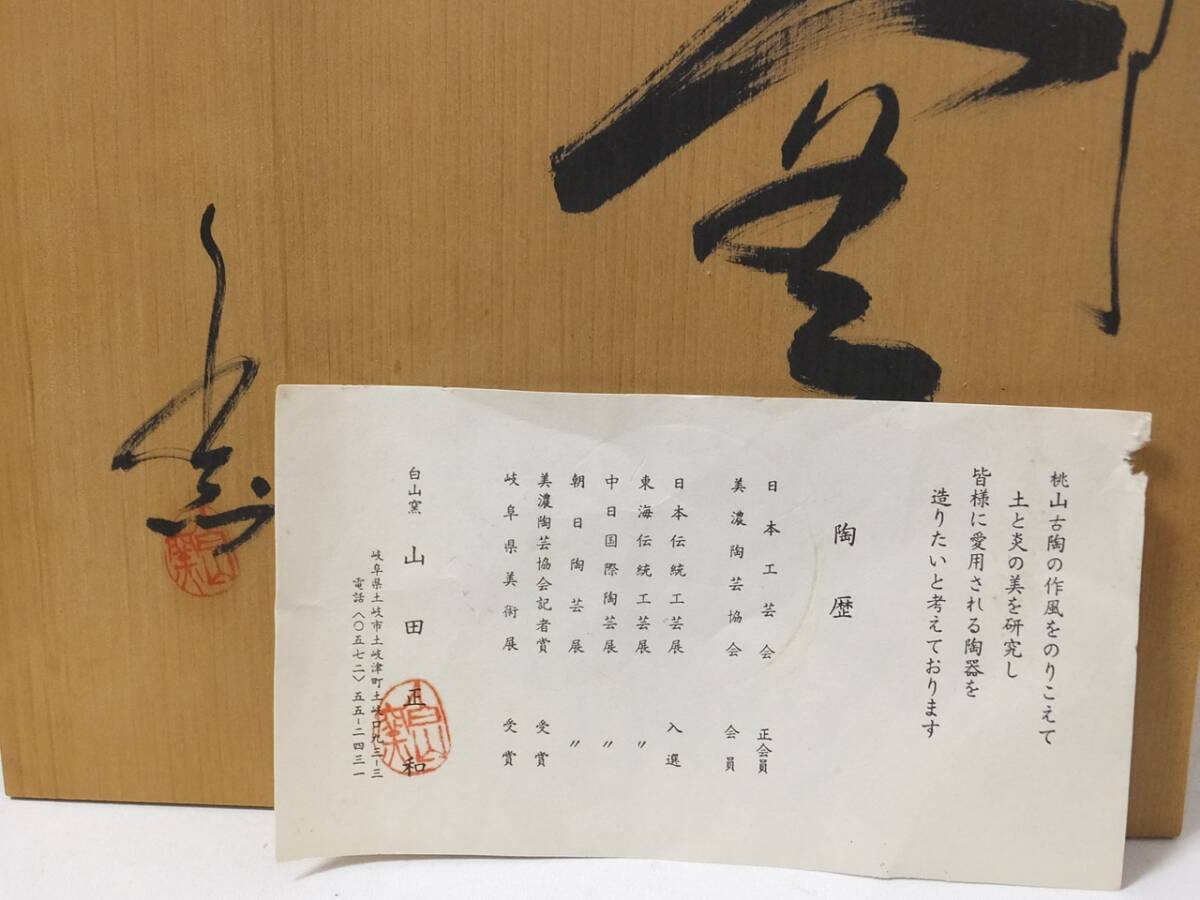 桃山古陶の作風をのりこえて
土と炎の美を研究し
皆様に愛用される陶器を
造りたいと考えております
陶歴
日本工芸会 正会員
美濃陶芸協会 会員
日本伝統工芸展 入選
東海伝統工芸展 〃
中日国際陶芸展 〃
朝日陶芸展 〃
美濃陶芸協会記者賞 受賞
岐阜県美術展 受賞
白山窯 山田正和
岐阜県土岐市土岐津町土岐口九三ー三
電話〈〇五七二〉五五ー二四三一
白山窯